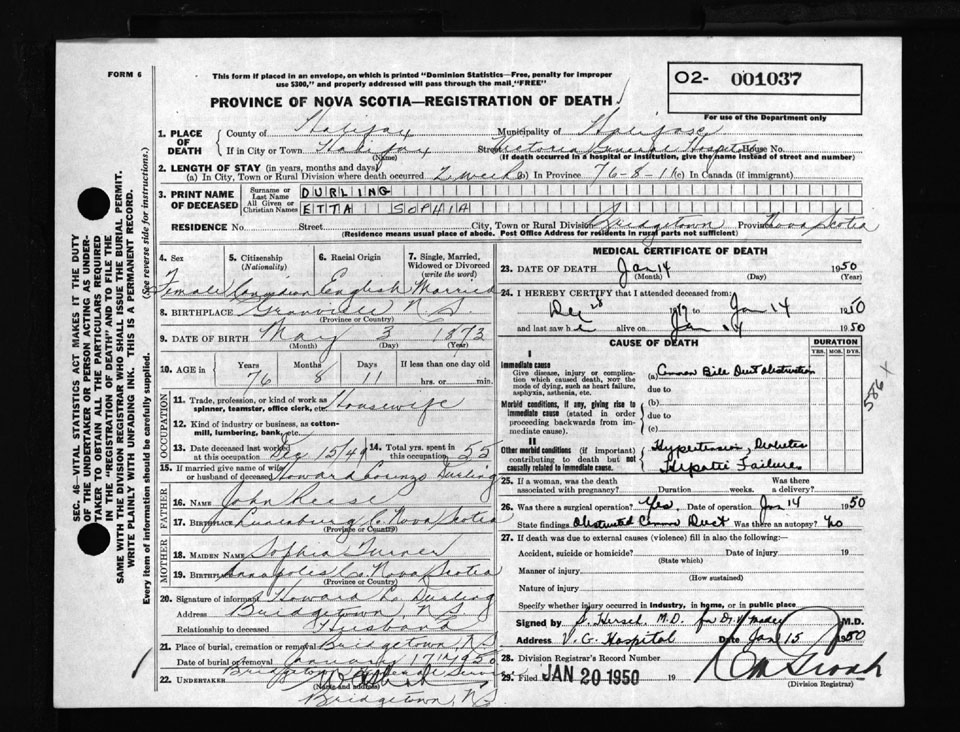 FORM 6
This form if placed in an envelope, on which is printed "Dominion Statistics—Free, penalty for improper
use $300," and properly addressed will pass through the mail, "FREE"
PROVINCE OF NOVA SCOTIA—REGISTRATION OF DEATH
02- 001037
For use of the Department only
1. PLACE OF DEATH
County of Halifax Municipality of Halifax
If in City or Town Halifax Street Victoria General Hospital House No.
(Name) (If death occurred in a hospital or institution, give the name instead of street and number)
2. LENGTH OF STAY (in years, months and days)
(a) In City, Town or Rural Division where death occurred 2 weeks (b) In Province 76-8-11 (c) In Canada (if immigrant)
3. PRINT NAME OF DECEASED
Surname or Last Name DURLING
All Given or Christian Names ETTA SOPHIA
RESIDENCE No. Street City, Town or Rural Division Bridgetown Province Nova Scotia
(Residence means usual place of abode. Post Office Address for residents in rural parts not sufficient)
4. Sex Female
5. Citizenship (Nationality) Canadian
6. Racial Origin English
7. Single, Married, Widowed or Divorced (write the word) Married
8. BIRTHPLACE Granville N.S.
(Province or Country)
9. DATE OF BIRTH May 3 1873
(Month) (Day) (Year)
10. AGE in Years 76 Months 8 Days 11 If less than one day hrs. or min.
OCCUPATION
11. Trade, profession, or kind of work as spinner, teamster, office clerk, etc. Housewife
12. Kind of industry or business, as cotton-mill, lumbering, bank, etc.
13. Date deceased last worked at this occupation Dec 15/49
14. Total yrs. spent in this occupation 55
15. If married give name of wife or husband of deceased Howard Lorenzo Durling
FATHER
16. Name John Reese
17. Birthplace Lunenburg C. Nova Scotia
(Province or Country)
MOTHER
18. Maiden Name Sophia Turner
19. Birthplace Annapolis Co. Nova Scotia
(Province or Country)
20. Signature of informant Howard L. Durling
Address Bridgetown, N.S.
Relationship to deceased Husband
21. Place of burial, cremation or removal Bridgetown, N.S.
Date of burial or removal January 17th 1950
22. UNDERTAKER
(Name and address)
Bridgetown, N.S.
MEDICAL CERTIFICATE OF DEATH
23. DATE OF DEATH Jan 14 1950
(Month) (Day)
24. I HEREBY CERTIFY that I attended deceased from:
Dec 28 1949 to Jan 14 1950
and last saw h alive on Jan 14 1950
CAUSE OF DEATH
DURATION
YRS. MOS. DYS.
I
Immediate cause
Give disease, injury or complication which caused death, NOT the mode of dying, such as heart failure, asphyxia, asthenia, etc.
(a) Common Bile Duct Obstruction
due to
Morbid conditions, if any, giving rise to immediate cause (stated in order proceeding backwards from immediate cause).
(b)
due to
(c)
II
Other morbid conditions (if important) contributing to death but not causally related to immediate cause.
Hypertension, Diabetes
Hepatic Failure
586 x
25. If a woman, was the death associated with pregnancy? Duration weeks. Was there a delivery?
26. Was there a surgical operation? Yes. Date of operation Jan 14 1950
State findings Obstructed Common Duct Was there an autopsy? No
27. If death was due to external causes (violence) fill in also the following:—
Accident, suicide or homicide? Date of injury 19
(State which)
Manner of injury
(How sustained)
Nature of injury
Specify whether injury occurred in industry, in home, or in public place
Signed by S. Hirsch, M.D. for Dr. M.D.
Address V. G. Hospital Date Jan 15 1950
28. Division Registrar's Record Number
29. Filed JAN 20 1950 19
(Division Registrar)
SEC. 46— VITAL STATISTICS ACT MAKES IT THE DUTY
OF THE UNDERTAKER OR PERSON ACTING AS UNDER-
TAKER TO OBTAIN ALL THE PARTICULARS REQUIRED
IN THE "REGISTRATION OF DEATH" AND TO FILE THE
SAME WITH THE DIVISION REGISTRAR WHO SHALL ISSUE THE BURIAL PERMIT.
WRITE PLAINLY WITH UNFADING INK. THIS IS A PERMANENT RECORD.
Every item of information should be carefully supplied. (See reverse side for instructions.)